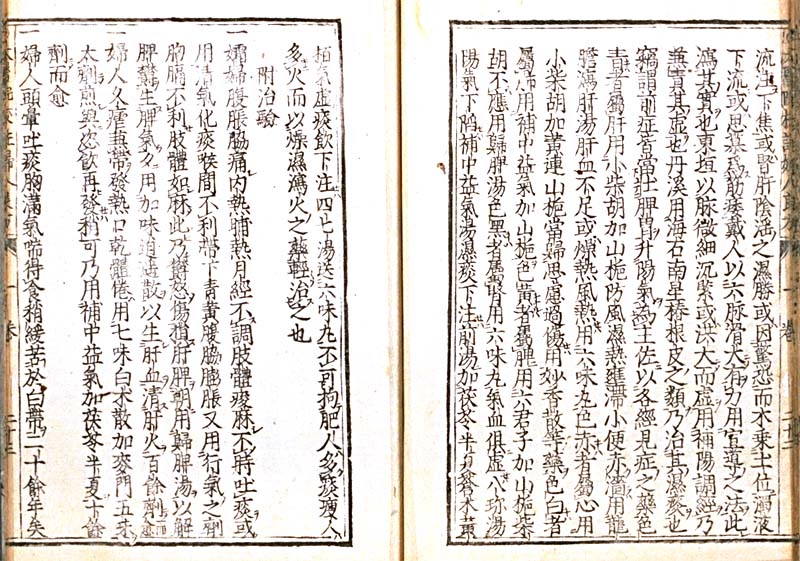 流注下焦或腎肝陰淫之濕勝或因驚恐而木乗土位濁液
下流或思慕爲筋痿戴人以六脉滑大有力用宣導之法此
瀉其實也東垣以脉微細沉緊或洪大而虚用補陽調經乃
兼責其虚也丹溪用海石南星椿根皮之類乃治其濕痰也
竊謂前症皆當壯脾胃升陽氣爲主佐以各經見症之藥色
青者屬肝用小柴胡加山梔防風濕熱壅滞小便赤濇用龍
膽瀉肝湯肝血不足或燥熱風熱用六味丸色赤者屬心用
小柴胡加黄連山梔當歸思慮過傷用妙香散等藥色白者
屬肺用補中益氣加山梔色黄者屬脾用六君子加山梔柴
胡不應用歸脾湯色黑者屬腎用六味丸氣血俱虚八珍湯
陽氣下陷補中益氣湯濕痰下注前湯加茯苓半夏蒼木黄
栢氣虚痰飲下注四七湯送六味丸不可拘肥人多痰瘦人
多火而以燥濕瀉火之藥輕治之也
附治驗
一孀婦腹脹脇痛内熱晡熱月經不調肢體痠麻不時吐痰或
用清氣化痰喉間不利帶下青黄腹脇膨脹又用行氣之劑
胸膈不利肢體如麻此乃鬱怒傷損肝脾朝用歸脾湯以解
脾鬱生脾氣夕用加味逍遥散以生肝血清肝火百餘劑而愈
一婦人久瘧兼帶發熱口乾體倦用七味白木散加麥門五味
大劑煎與恣飲再發稍可乃用補中益氣加茯苓半夏十餘
劑而愈
一婦人頭暈吐痰胸満氣喘得食稍緩苦於白帶二十餘年矣